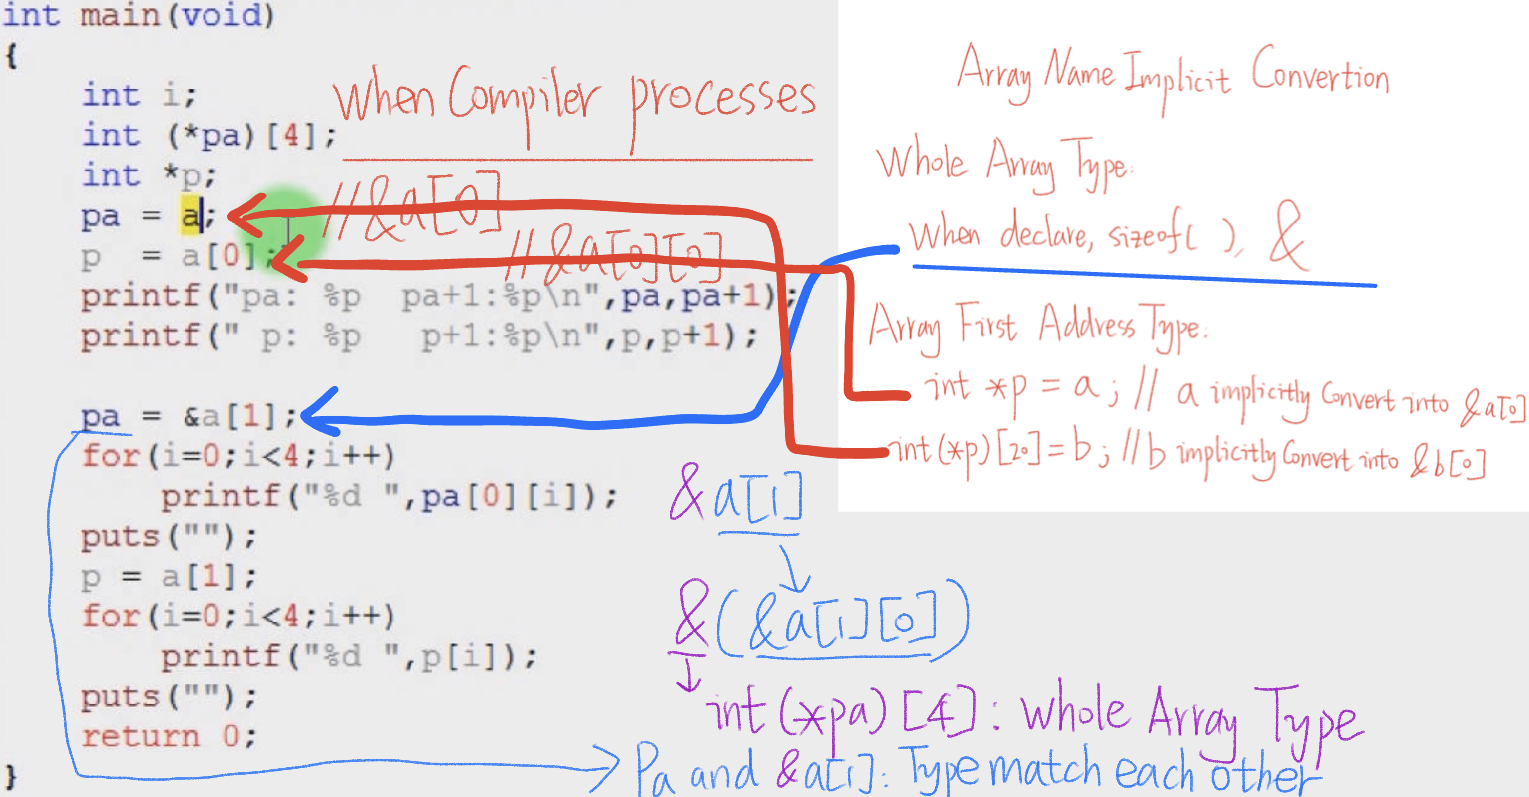 int main(void)
{
int i;
int (*pa)[4];
int *p;
pa = a;
p = a[0];
printf("pa: %p pa+1:%p\n",pa,pa+1);
printf(" p: %p p+1:%p\n",p,p+1);
pa = &a[1];
for(i=0;i<4;i++)
printf("%d ",pa[0][i]);
puts("");
p = a[1];
for(i=0;i<4;i++)
printf("%d ",p[i]);
puts("");
return 0;
}
when Compiler processes
//&a[0]
//&a[0][0]
Array Name Implicit Convertion
Whole Array Type:
When declare, sizeof( ), &
Array First Address Type:
int *p = a; // a implicitly Convert into &a[0]
int(*p)[20]=b; //b implicitly Convert into &b[0]
&a[1]
&(&a[1][0])
int(*pa)[4]: whole Array Type
Pa and &a[1]: Type match each other